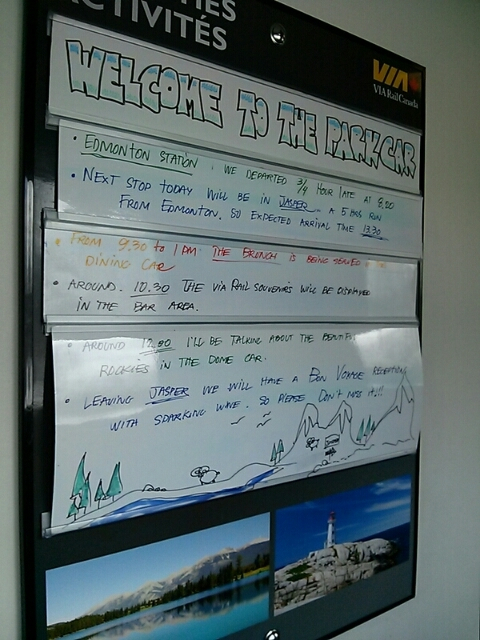 ACTIVITÉS
VIA
VIA Rail Canada
WELCOME TO THE PARK CAR
• EDMONTON STATION, WE DEPARTED 3/4 HOUR LATE AT 8,00
• NEXT STOP TODAY WILL BE IN JASPER A 5 HRS RUN
FROM EDMONTON. SO EXPECTED ARRIVAL TIME 13.30
• FROM 9.30 to 1 PM THE BRUNCH IS BEING SERVED
DINING CAR
• AROUND. 10.30 THE VIA RAIL SOUVENIRS WILL BE DISPLAYED
IN THE BAR AREA.
• AROUND 12.00 I'LL BE TALKING ABOUT THE
ROCKIES IN THE DOME CAR.
• LEAVING JASPER WE WILL HAVE A BON VOYAGE RECEPTION
WITH SPARKING WINE. SO PLEASE DON'T MISS IT!!!